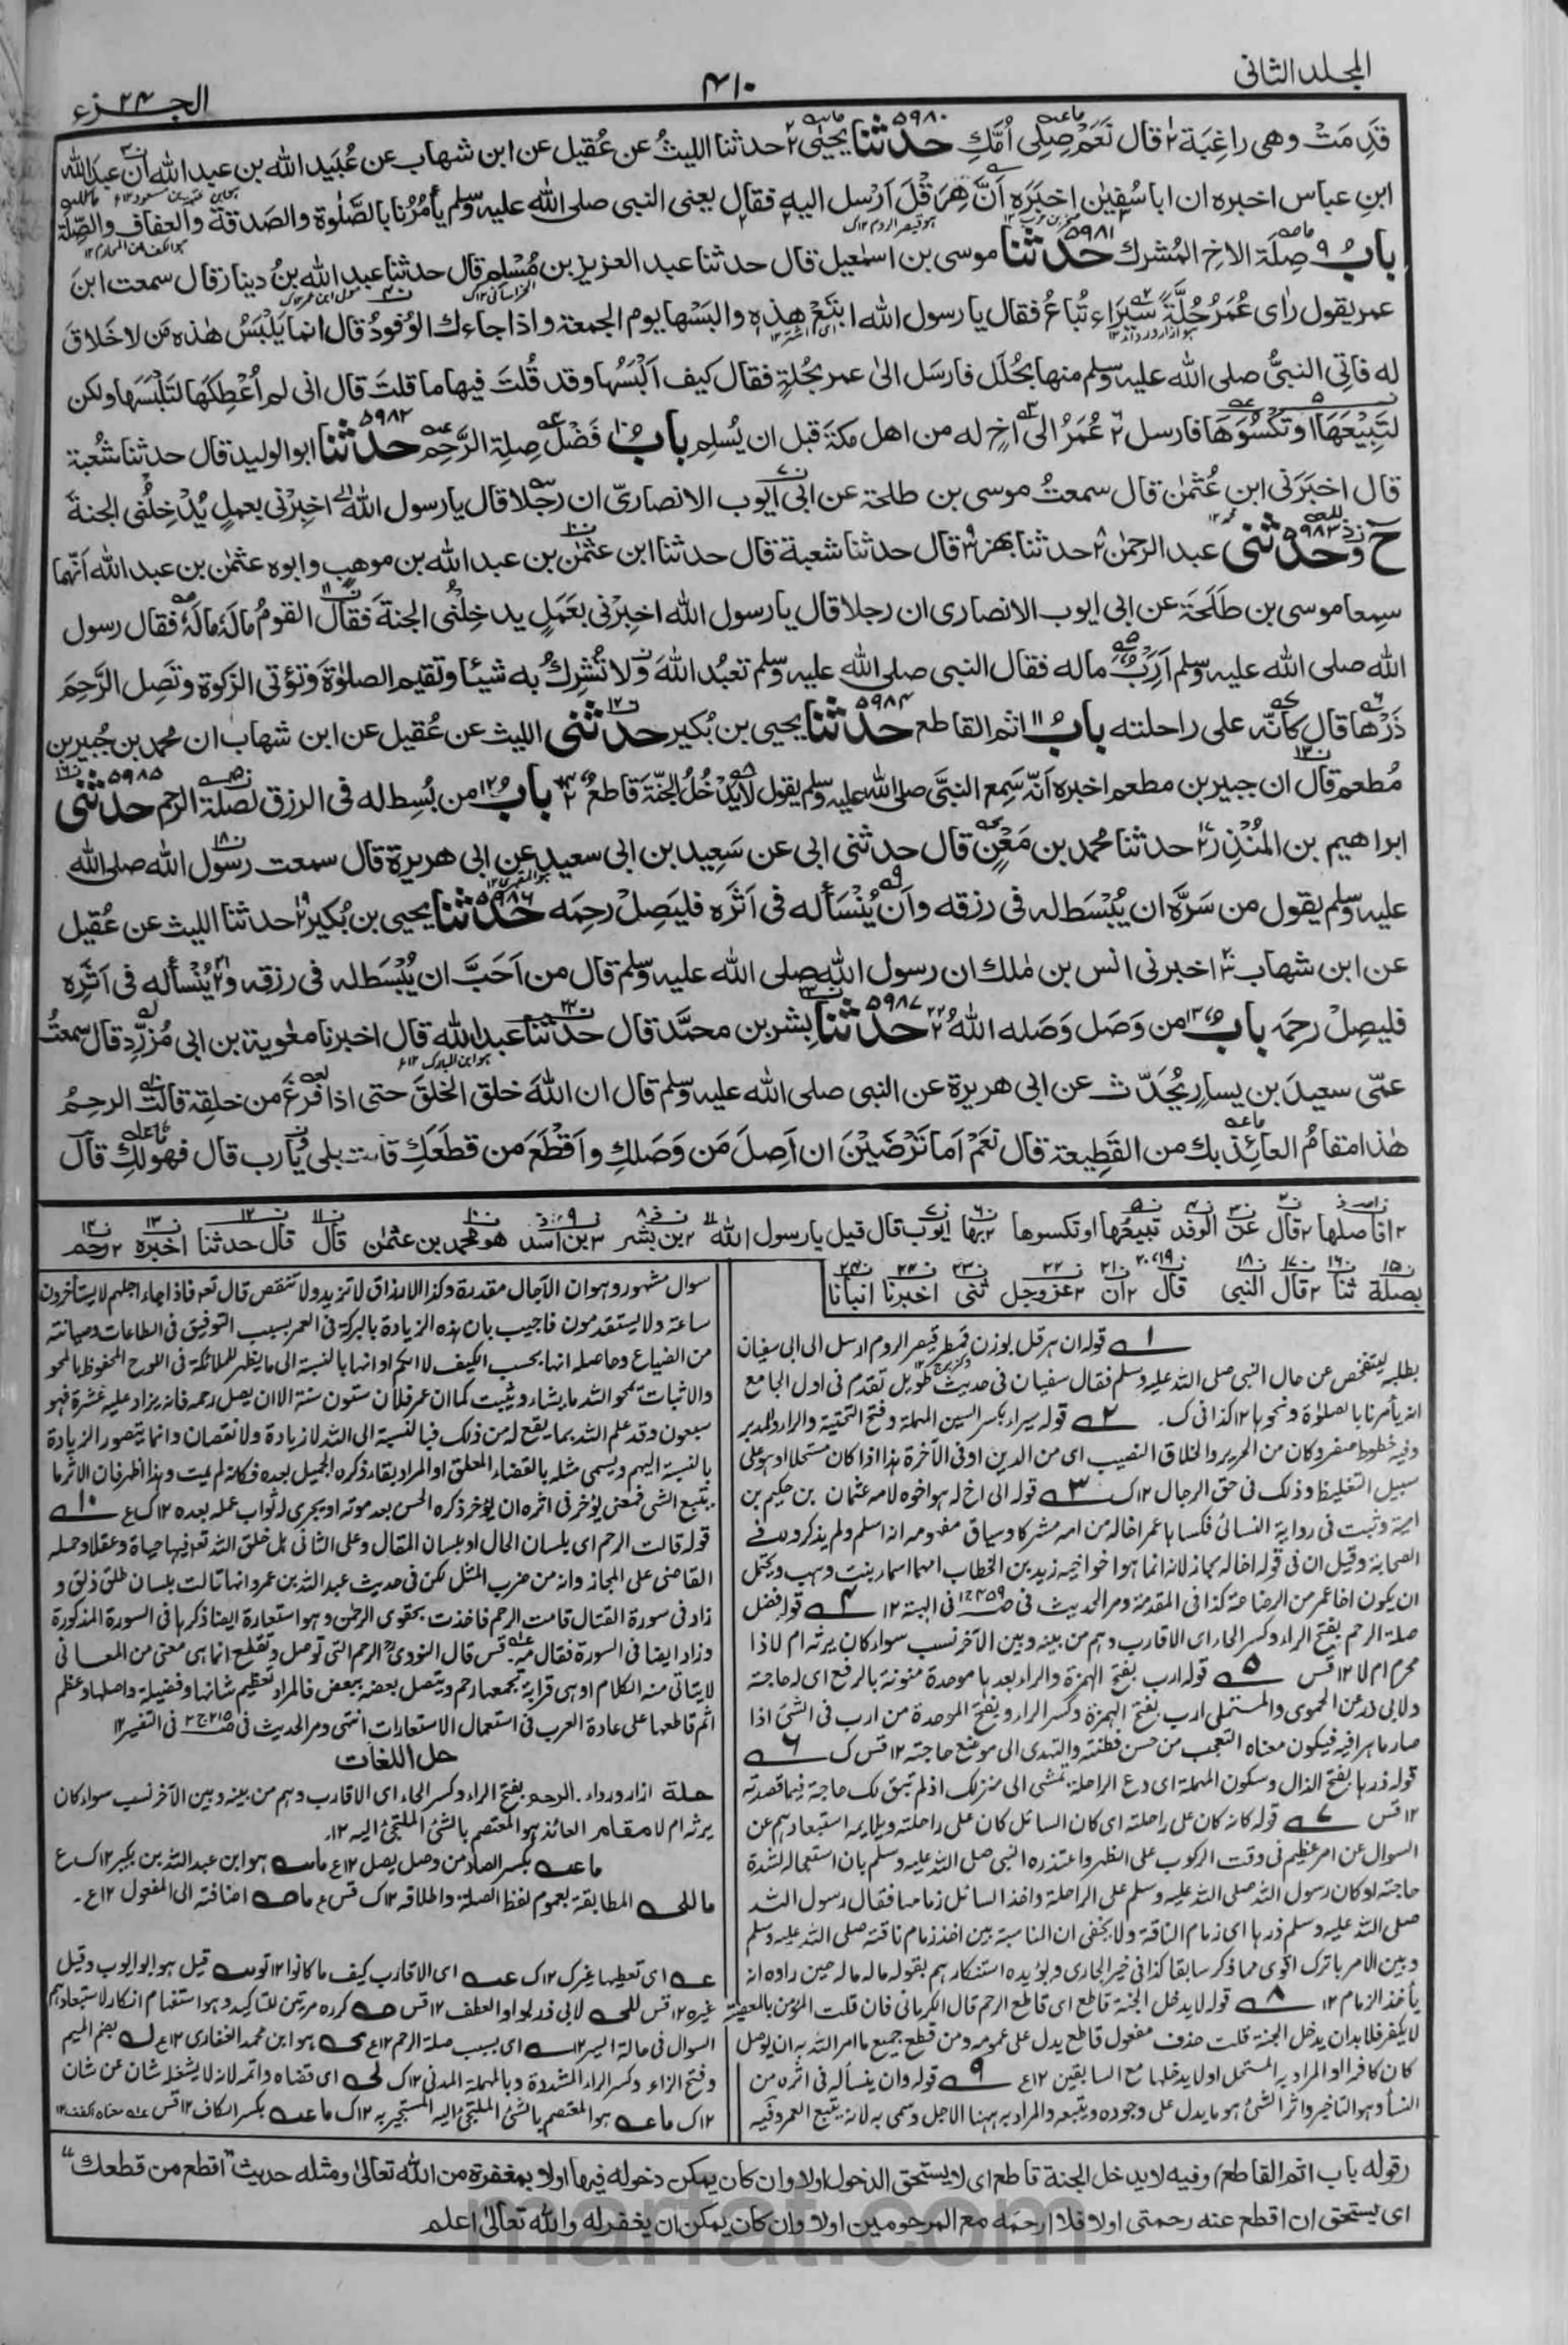 المجلد الثانی
۴۱۰
الجزء ۲۴
قَدِمَتْ وهی راغِبَة قال نَعَمْ صِلِی اُمَّكِ حدثنا ۵۹۸۰ یحیٰی حدثنا اللیثُ عن عُقیل عن ابن شهاب عن عُبَید الله بن عبد الله ان عبد الله
ابنِ عباس اخبره ان ابا سُفیٰن اخبَرَه اَنَّ هِرَقْلَ اَرْسل الیه فقال یعنی النبی صلی الله علیه وسلم یأمُرُنا بالصَّلٰوة والصدقة والعفاف والصِّلَة
بابُ ۹ صِلَة الاخِ المُشرك حدثنا ۵۹۸۱ موسی بن اسمٰعیل قال حدثنا عبد العزیز بن مُسْلِم قال حدثنا عبد الله بنُ دینار قال سمعت ابنَ
عمر یقول راٰی عُمَرُ حُلَّةً سِیَرَاء تُباعُ فقال یا رسول الله ابتَعْ هٰذِه والبَسْها یوم الجمعة واذا جاءك الوُفودُ قال انما یَلْبَسُ هٰذه مَن لا خَلاقَ
له فاُتِی النبیُّ صلی الله علیه وسلم منها بحُلَل فارسَل الیٰ عمر بحُلةٍ فقال کیف اَلْبَسُها وقد قُلتَ فیها ما قلتَ قال انی لم اُعْطِکَها لتَلْبَسَها ولکن
لتَبِیْعَهَا او تَکْسُوَهَا فارسل عُمَرُ الی اَخٍ له من اهل مکةَ قبل ان یُسلِم بابُ ۱۰ فَضْلِ صِلةِ الرَّحِمِ حدثنا ۵۹۸۲ ابو الولید قال حدثنا شعُبة
قال اخبَرَنی ابن عُثمٰن قال سمعتُ موسی بن طلحة عن ابی ایوب الانصاریّ ان رجلا قال یا رسول الله اخبِرْنی بعملٍ یُدْخِلُنی الجنةَ
ح وحدثنی ۵۹۸۳ عبد الرحمٰن حدثنا بهز قال حدثنا شعبة قال حدثنا ابن عثمٰن بن عبد الله بن موهبٍ وابوه عثمٰن بن عبد الله اَنّهما
سمِعا موسی بن طَلحَة عن ابی ایوب الانصاری ان رجلا قال یا رسول الله اخبِرْنی بعَمَلٍ یدخِلُنی الجنةَ فقال القومُ مالَهٗ مالَهٗ فقال رسول
الله صلی الله علیه وسلم اَرَبٌ ماله فقال النبی صلی الله علیه وسلم تعبُد اللهَ ولا تُشرِكُ به شیئا وتقیم الصلوٰةَ وتؤتی الزکوٰةَ وتَصِل الرَّحِمَ
ذَرْها قال کأنّه علی راحلته بابُ ۱۱ اثم القاطع حدثنا ۵۹۸۴ یحیی بن بُکیر حدثنی اللیث عن عُقیل عن ابن شهاب ان محمد بن جُبیر بن
مُطعم قال ان جبیر بن مطعم اخبره اَنّه سَمِع النبیَّ صلی الله علیه وسلم یقول لا یَدْخُلُ الجنّةَ قاطعٌ بابُ ۱۲ من بُسِط له فی الرزق لصلة الرحم حدثنی ۵۹۸۵
ابراهیم بن المُنذِر حدثنا محمد بن مَعْنٍ قال حدثنی ابی عن سَعِید بن ابی سعیدٍ عن ابی هریرة قال سمعت رسول الله صلی الله
علیه وسلم یقول من سَرَّه ان یُبْسَط له فی رزقه واَنْ یُنْسَأ له فی اَثَرَه فلیَصِلْ رحِمَه حدثنا ۵۹۸۶ یحیی بن بُکیر حدثنا اللیث عن عُقیل
عن ابن شهاب اخبرنی انس بن مٰلك ان رسول الله صلی الله علیه وسلم قال من اَحَبَّ ان یُبْسَط له فی رزقه ویُنْسأ له فی اَثَرِه
فلیصِلْ رحِمَه بابُ ۱۳ من وَصَل وَصَله الله حدثنا ۵۹۸۷ بِشر بن محمَّد قال حدثنا عبد الله قال اخبرنا معٰویة بن ابی مُزَرِّد قال سمعتُ
عمّی سعیدَ بن یسارٍ یُحَدِّث عن ابی هریرة عن النبی صلی الله علیه وسلم قال ان اللهَ خلق الخلقَ حتی اذا فَرغَ من خلقِه قالت الرحِمُ
هٰذا مقامُ العائِذ بك من القَطِیعة قال نَعَمْ اَما تَرْضَیْنَ ان اَصِلَ مَن وَصَلكِ واَقْطَعَ من قطعَكِ قالت بلی یا رب قال فهو لكِ قال
افاصلها قال عن الوفد تبیعُها او تکسوها بها ایوب قال قیل یا رسول الله بن بشر بن اسد هو محمد بن عثمٰن قال قال حدثنا اخبره رحم
بصلة ثنا قال النبی قال ان عز وجل ثنی اخبرنا انبأنا
۱ قوله ان هرقل بوزن قمطر قیصر الروم ارسل الی ابی سفیان
بطلبه لیتفحص عن حال النبی صلی الله علیه وسلم فقال سفیان فی حدیث طویل تقدم فی اول الجامع
انه یأمرنا بالصلوٰة ونحوها ۱۲ کذا فی ک. ۲ قوله سیراء بکسر السین المهملة وفتح التحتیة والراء والمد برد
وفیه خطوط صفر وکان من الحریر والخلاق النصیب ای من الدین او فی الآخرة هذا اذا کان مستحلا او هو علی
سبیل التغلیظ وذلک فی حق الرجال ۱۲ ک ۳ قوله الی اخ له هو اخوه لامه عثمان بن حکیم بن
امیة وثبت فی روایة النسائی فکساها عمر اخاله من امه مشرکا وسیاق مفهومه انه اسلم ولم یذکروه فی
الصحابة وقیل ان فی قوله اخاله مجاز لانه انما هو اخو اخیه زید بن الخطاب امهما اسماء بنت وهب ویحتمل
ان یکون اخا عمر من الرضاعة کذا فی المقدمة ومر الحدیث فی فی الهبة ۱۲ ۴ قوله فضل
صلة الرحم بفتح الراء وکسر الحاء ای الاقارب وهم من بینه وبین الآخر نسب سواء کان یرثه ام لا ذا
محرم ام لا ۱۲ قس ۵ قوله ارب بفتح الهمزة والراء بعدها موحدة منونة بالرفع ای له حاجة
ولابی ذر عن الحموی والمستملی ارب بفتح الهمزة وکسر الراء وبفتح الموحدة من ارب فی الشئ اذا
صار ماهرا فیه فیکون معناه التعجب من حسن فطنته والتهدی الی موضع حاجته ۱۲ قس ک ۶
قوله ذرها بفتح الذال وسکون المهملة ای دع الراحلة تمشی الی منزلک اذ لم تبق لک حاجة فیما قصدته
۱۲ قس ۷ قوله کانه کان علی راحلته ای کان السائل کان علی راحلته ویلایمه استبعادهم عن
السوال عن امر عظیم فی وقت الرکوب علی الظهر واعتذره النبی صلی الله علیه وسلم بان استعجاله لشدة
حاجته او کان رسول الله صلی الله علیه وسلم علی الراحلة واخذ السائل زمامها فقال رسول الله
صلی الله علیه وسلم ذرها ای زمام الناقة ولا یخفی ان المناسبة بین اخذ زمام ناقته صلی الله علیه وسلم
وبین الامر بالترک اقوی مما ذکر سابقا کذا فی خیر الجاری ویؤیده استنکارهم بقوله ماله ماله حین راوه انه
یأخذ الزمام ۱۲ ۸ قوله لا یدخل الجنة قاطع ای قاطع الرحم قال الکرمانی فان قلت المؤمن بالمعصیة
لا یکفر فلا بد ان یدخل الجنة قلت حذف مفعول قاطع یدل علی عمومه ومن قطع جمیع ما امر الله به ان یوصل
کان کافرا او المراد به المستحل او لا یدخلها مع السابقین ۱۲ ع ۹ قوله وان ینسأ له فی اثره من
النسأ وهو التاخیر واثر الشئ هو ما یدل علی وجوده ویتبعه والمراد به ههنا الاجل وسمی به لانه یتبع العمر وفیه
سوال مشهور وهو ان الآجال مقدرة وکذا الارزاق لا تزید ولا تنقص قال تعالی فاذا جاء اجلهم لا یستأخرون
ساعة ولا یستقدمون فاجیب بان هذه الزیادة بالبرکة فی العمر بسبب التوفیق فی الطاعات وصیانته
من الضیاع وحاصله انها بحسب الکیف لا الکم او انها بالنسبة الی ما یظهر للملائکة فی اللوح المحفوظ بالمحو
والاثبات یمحو الله ما یشاء ویثبت کما ان عمر فلان ستون سنة الا ان یصل رحمه فانه یزاد علیه عشرة فهو
سبعون وقد علم الله بما یقع له من ذلک فبالنسبة الی الله لا زیادة ولا نقصان وانما یتصور الزیادة
بالنسبة الیهم ویسمی مثله بالقضاء المعلق او المراد بقاء ذکره الجمیل بعده فکانه لم یمت وهذا اظهر فان الاثر ما
یتبع الشئ فمعنی یؤخر فی اثره ان یؤخر ذکره الحسن بعد موته او یجری له ثواب عمله بعده ۱۲ ک ع ۱۰
قوله قالت الرحم ای بلسان الحال او بلسان المقال وعلی الثانی هل خلق الله تعالی فیها حیاة وعقلا وحمله
القاضی علی المجاز وانه من ضرب المثل لکن فی حدیث عبد الله بن عمرو انها قالت بلسان طلق ذلق و
زاد فی سورة القتال قامت الرحم فاخذت بحقوی الرحمٰن وهو استعارة ایضا ذکرها فی السورة المذکورة
وزاد ایضا فی السورة فقال مه قس قال النووی الرحم التی توصل وتقطع انما هی معنی من المعانی
لا یتاتی منه الکلام اذ هی قرابة تجمعها رحم ویتصل بعضه ببعض فالمراد تعظیم شانها وفضیلة واصلها وعظم
اثم قاطعها علی عادة العرب فی استعمال الاستعارات انتهی ومر الحدیث فی فی التفسیر ۱۲
حل اللغات
حلة ازار ورداء. الرحم بفتح الراء وکسر الحاء ای الاقارب وهم من بینه وبین الآخر نسب سواء کان
یرثه ام لا مقام العائذ هو المعتصم بالشئ الملتجئ الیه ۱۲.
بکسر الصاد من وصل یصل ۱۲ ع هو ابن عبد الله بن بکیر ۱۲ ک ع
المطابقة بعموم لفظ الصلة واطلاقه ۱۲ ک قس ع اضافة الی المفعول ۱۲ ع.
ای تعطیها غیرک ۱۲ ک ای الاقارب کیف ما کانوا ۱۲ قیل هو ابو ایوب وقیل
غیره ۱۲ قس لابی ذر بواو العطف ۱۲ قس کرره مرتین للتاکید وهو استفهام انکار لاستبعادهم
السوال فی حالة السیر ۱۲ ای بسبب صلة الرحم ۱۲ ع هو ابن محمد الغفاری ۱۲ ع بضم المیم
وفتح الزاء وکسر الراء المشددة وبالمهملة المدنی ۱۲ ک ای قضاه واتمه لانه لا یشغله شان عن شان
۱۲ ک هو المعتصم بالشئ الملتجئ الیه المستجیر به ۱۲ ک بکسر الکاف ۱۲ قس
(قوله باب اثم القاطع) وفیه لا یدخل الجنة قاطع ای لا یستحق الدخول اولا وان کان یمکن دخوله فیها اولا بمغفرة من الله تعالیٰ ومثله حدیث "اقطع من قطعك"
ای یستحق ان اقطع عنه رحمتی اولا فلا ارحمه مع المرحومین اولا وان کان یمکن ان یغفر له والله تعالیٰ اعلم
marfat.com